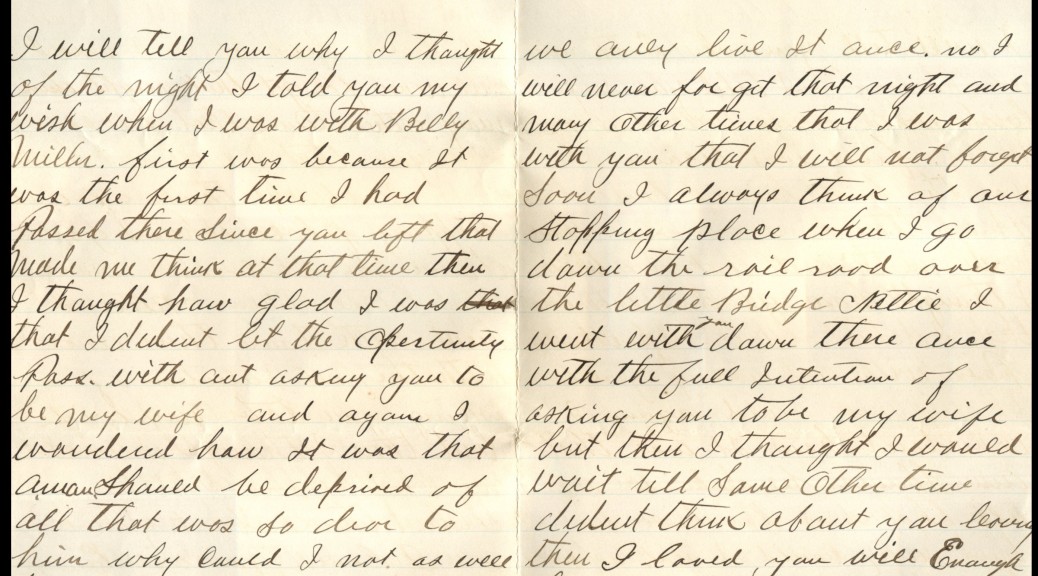 I will tell you why I thought
of the night I told you my
wish when I was with Billy
Miller. first was because It
was the first time I had
Passed there Since you left that
Made me think at that time then
I thought how glad I was that
that I dident let the Opertunity
Pass. with out asking you to
be my wife and again I
wondered how It was that
a man Should be deprived of
all that was so dear to
him why Could I not. as well
we only live It once. no I
will never for get that night and
many Other times that I was
with you that I will not forget
Soon I always think of our
Stopping place when I go
down the rail road over
the little Bridge Nettie I
went with you down there once
with the full Intention of
asking you to be my wife
but then I thought I would
wait till Some Other time
dident think about you leaving
then I loved you well Enough